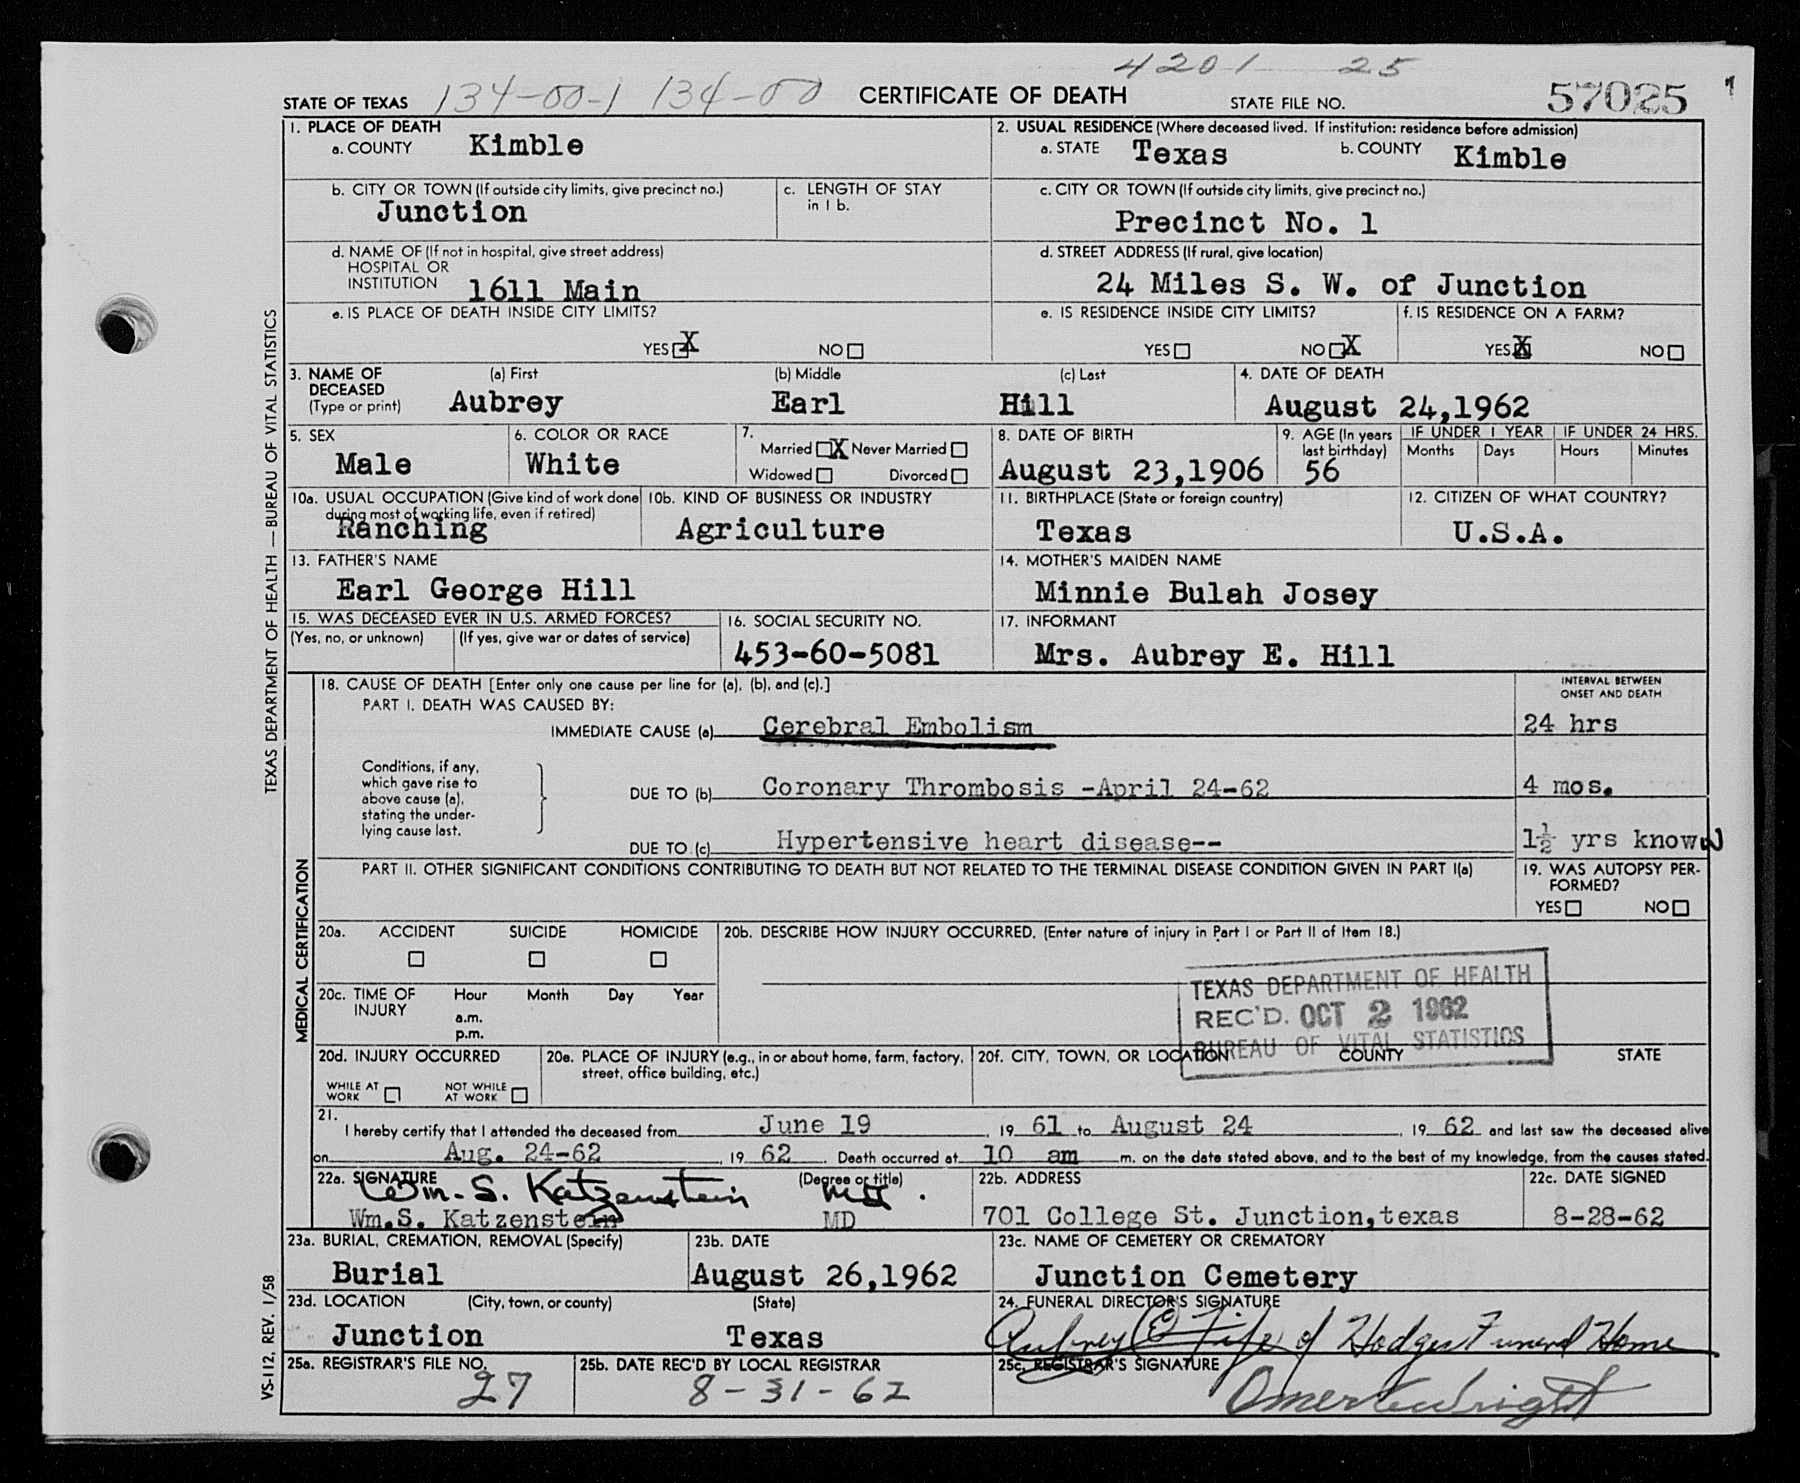 4201 25
STATE OF TEXAS 134-00-1 134-00 CERTIFICATE OF DEATH STATE FILE NO. 57025
1. PLACE OF DEATH
a. COUNTY Kimble
2. USUAL RESIDENCE (Where deceased lived. If institution: residence before admission)
a. STATE Texas b. COUNTY Kimble
b. CITY OR TOWN (If outside city limits, give precinct no.)
Junction
c. LENGTH OF STAY
in 1 b.
c. CITY OR TOWN (If outside city limits, give precinct no.)
Precinct No. 1
d. NAME OF (If not in hospital, give street address)
HOSPITAL OR
INSTITUTION 1611 Main
d. STREET ADDRESS (If rural, give location)
24 Miles S. W. of Junction
e. IS PLACE OF DEATH INSIDE CITY LIMITS?
YES X NO
e. IS RESIDENCE INSIDE CITY LIMITS?
YES NO X
f. IS RESIDENCE ON A FARM?
YES X NO
3. NAME OF
DECEASED
(Type or print)
(a) First (b) Middle (c) Last
Aubrey Earl Hill
4. DATE OF DEATH
August 24,1962
5. SEX
Male
6. COLOR OR RACE
White
7.
Married X Never Married
Widowed Divorced
8. DATE OF BIRTH
August 23,1906
9. AGE (In years
last birthday)
56
IF UNDER 1 YEAR
Months Days
IF UNDER 24 HRS.
Hours Minutes
10a. USUAL OCCUPATION (Give kind of work done
during most of working life, even if retired)
Ranching
10b. KIND OF BUSINESS OR INDUSTRY
Agriculture
11. BIRTHPLACE (State or foreign country)
Texas
12. CITIZEN OF WHAT COUNTRY?
U.S.A.
13. FATHER'S NAME
Earl George Hill
14. MOTHER'S MAIDEN NAME
Minnie Bulah Josey
15. WAS DECEASED EVER IN U.S. ARMED FORCES?
(Yes, no, or unknown) (If yes, give war or dates of service)
16. SOCIAL SECURITY NO.
453-60-5081
17. INFORMANT
Mrs. Aubrey E. Hill
18. CAUSE OF DEATH [Enter only one cause per line for (a), (b), and (c).]
PART I. DEATH WAS CAUSED BY:
INTERVAL BETWEEN
ONSET AND DEATH
IMMEDIATE CAUSE (a) Cerebral Embolism 24 hrs
Conditions, if any,
which gave rise to
above cause (a),
stating the under-
lying cause last.
DUE TO (b) Coronary Thrombosis -April 24-62 4 mos.
DUE TO (c) Hypertensive heart disease-- 1½ yrs known
PART II. OTHER SIGNIFICANT CONDITIONS CONTRIBUTING TO DEATH BUT NOT RELATED TO THE TERMINAL DISEASE CONDITION GIVEN IN PART I(a)
19. WAS AUTOPSY PER-
FORMED?
YES NO
20a. ACCIDENT SUICIDE HOMICIDE
20b. DESCRIBE HOW INJURY OCCURRED. (Enter nature of injury in Part I or Part II of Item 18.)
20c. TIME OF
INJURY
Hour Month Day Year
a.m.
p.m.
TEXAS DEPARTMENT OF HEALTH
REC'D. OCT 2 1962
BUREAU OF VITAL STATISTICS
20d. INJURY OCCURRED
WHILE AT
WORK
NOT WHILE
AT WORK
20e. PLACE OF INJURY (e.g., in or about home, farm, factory,
street, office building, etc.)
20f. CITY, TOWN, OR LOCATION COUNTY STATE
21.
I hereby certify that I attended the deceased from June 19, 19 61 to August 24, 19 62 and last saw the deceased alive
on Aug. 24-62, 19 62. Death occurred at 10 am m. on the date stated above, and to the best of my knowledge, from the causes stated.
22a. SIGNATURE (Degree or title)
Wm. S. Katzenstein MD.
Wm.S. Katzenstein MD
22b. ADDRESS
701 College St. Junction,texas
22c. DATE SIGNED
8-28-62
23a. BURIAL, CREMATION, REMOVAL (Specify)
Burial
23b. DATE
August 26,1962
23c. NAME OF CEMETERY OR CREMATORY
Junction Cemetery
23d. LOCATION (City, town, or county) (State)
Junction Texas
24. FUNERAL DIRECTOR'S SIGNATURE
Aubrey E Fife of Hodges Funeral Home
25a. REGISTRAR'S FILE NO.
27
25b. DATE REC'D BY LOCAL REGISTRAR
8-31-62
25c. REGISTRAR'S SIGNATURE
TEXAS DEPARTMENT OF HEALTH — BUREAU OF VITAL STATISTICS
MEDICAL CERTIFICATION
VS-112, REV. 1/58